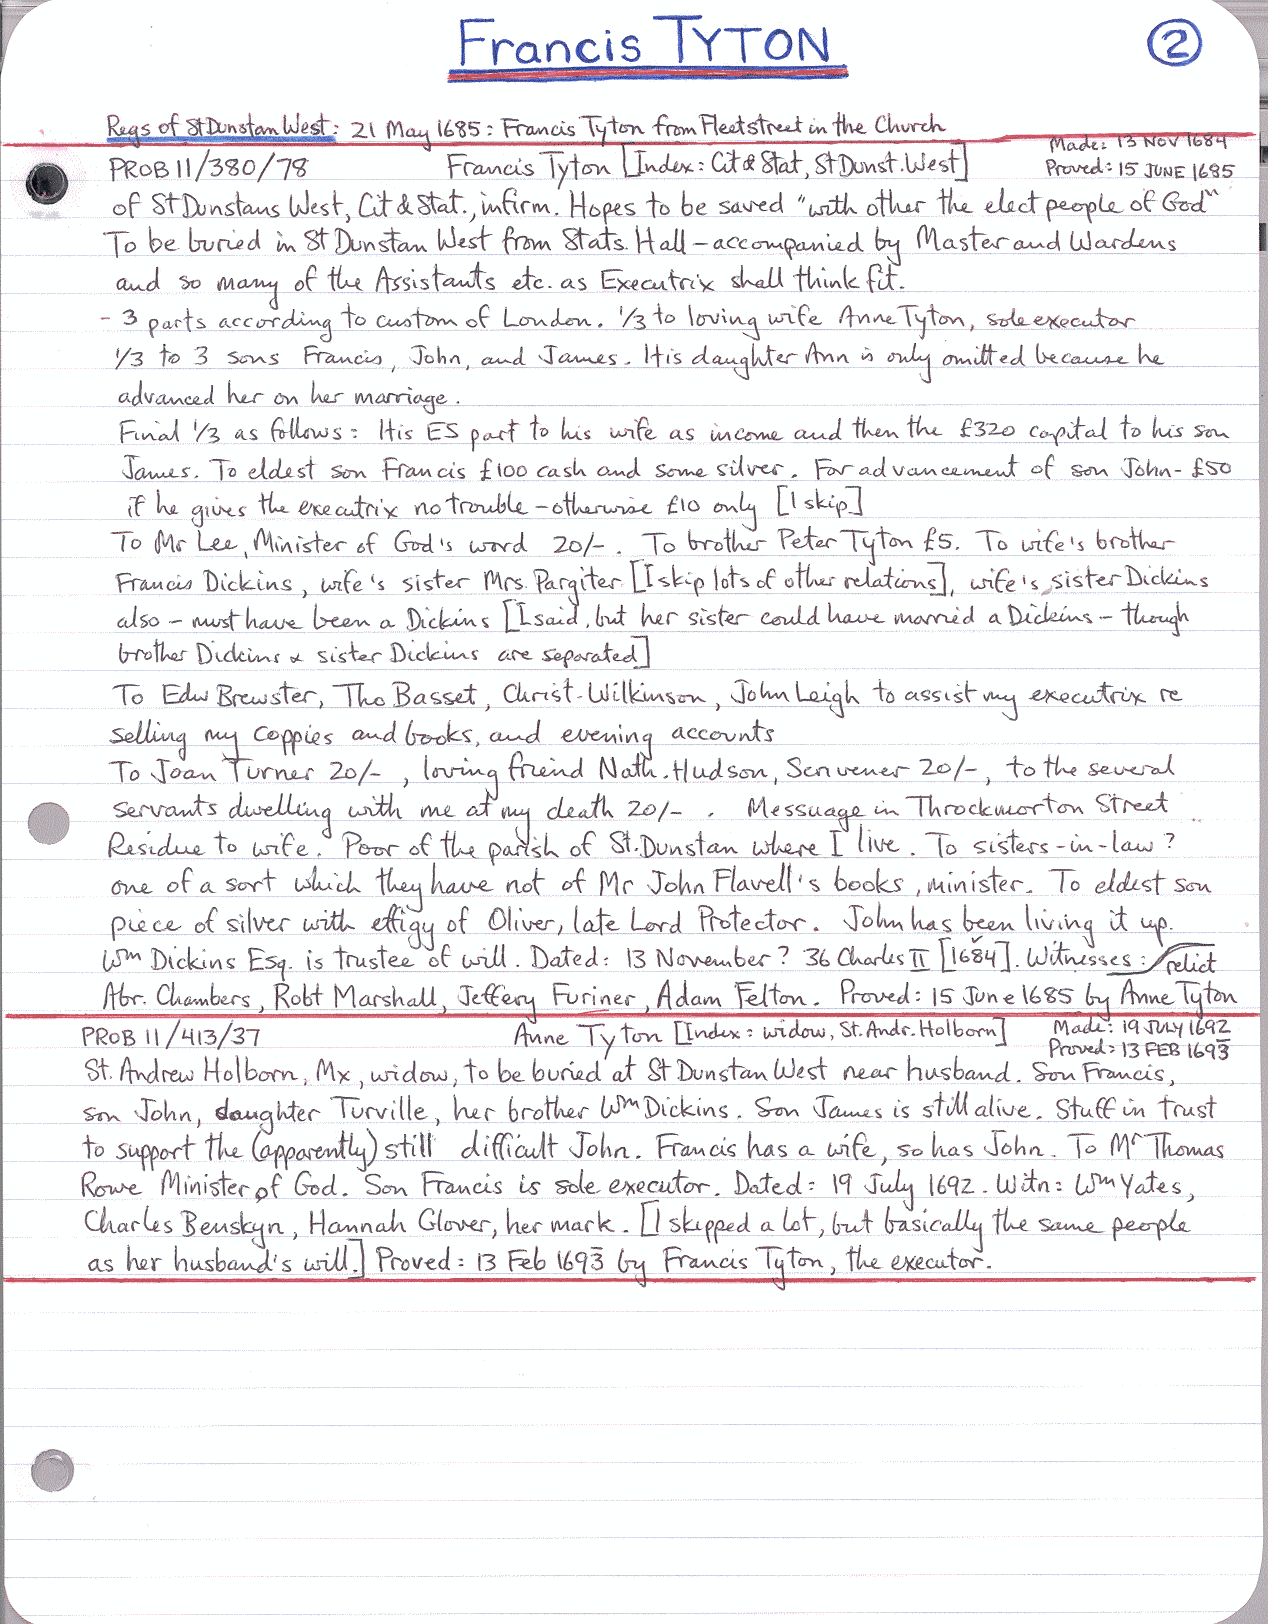 Francis TYTON
2
Regs of St Dunstan West: 21 May 1685: Francis Tyton from Fleetstreet in the Church
Made: 13 NOV 1684
PROB 11/380/78 Francis Tyton [Index: Cit & Stat, St Dunst. West] Proved: 15 JUNE 1685
of St Dunstans West, Cit & Stat., infirm. Hopes to be saved "with other the elect people of God"
To be buried in St Dunstan West from Stats. Hall – accompanied by Master and Wardens
and so many of the Assistants etc. as Executrix shall think fit.
- 3 parts according to custom of London. 1/3 to loving wife Anne Tyton, sole executor
1/3 to 3 sons Francis, John, and James. His daughter Ann is only omitted because he
advanced her on her marriage.
Final 1/3 as follows: His ES part to his wife as income and then the £320 capital to his son
James. To eldest son Francis £100 cash and some silver. For advancement of son John - £50
if he gives the executrix no trouble – otherwise £10 only [I skip]
To Mr Lee, Minister of God's word 20/-. To brother Peter Tyton £5. To wife's brother
Francis Dickins, wife's sister Mrs. Pargiter [I skip lots of other relations], wife's sister Dickins
also – must have been a Dickins [I said, but her sister could have married a Dickins – though
brother Dickins & sister Dickins are separated]
To Edw Brewster, Tho Basset, Christ. Wilkinson, John Leigh to assist my executrix re
selling my coppies and books, and evening accounts
To Joan Turner 20/-, loving friend Nath. Hudson, Scrivener 20/-, to the several
servants dwelling with me at my death 20/-. Messuage in Throckmorton Street
Residue to wife. Poor of the parish of St. Dunstan where I live. To sisters-in-law?
one of a sort which they have not of Mr John Flavell's books, minister. To eldest son
piece of silver with effigy of Oliver, late Lord Protector. John has been living it up.
Wm Dickins Esq. is trustee of will. Dated: 13 November? 36 Charles II [1684]. Witnesses: relict
Abr. Chambers, Robt Marshall, Jeffery Furiner, Adam Felton. Proved: 15 June 1685 by Anne Tyton
PROB 11/413/37 Anne Tyton [Index: widow, St. Andr. Holborn] Made: 19 JULY 1692
Proved: 13 FEB 1693
St. Andrew Holborn, Mx, widow, to be buried at St Dunstan West near husband. Son Francis,
son John, daughter Turville, her brother Wm Dickins. Son James is still alive. Stuff in trust
to support the (apparently) still difficult John. Francis has a wife, so has John. To Mr Thomas
Rowe Minister of God. Son Francis is sole executor. Dated: 19 July 1692. Witn: Wm Yates,
Charles Benskyn, Hannah Glover, her mark. [I skipped a lot, but basically the same people
as her husband's will.] Proved: 13 Feb 1693 by Francis Tyton, the executor.